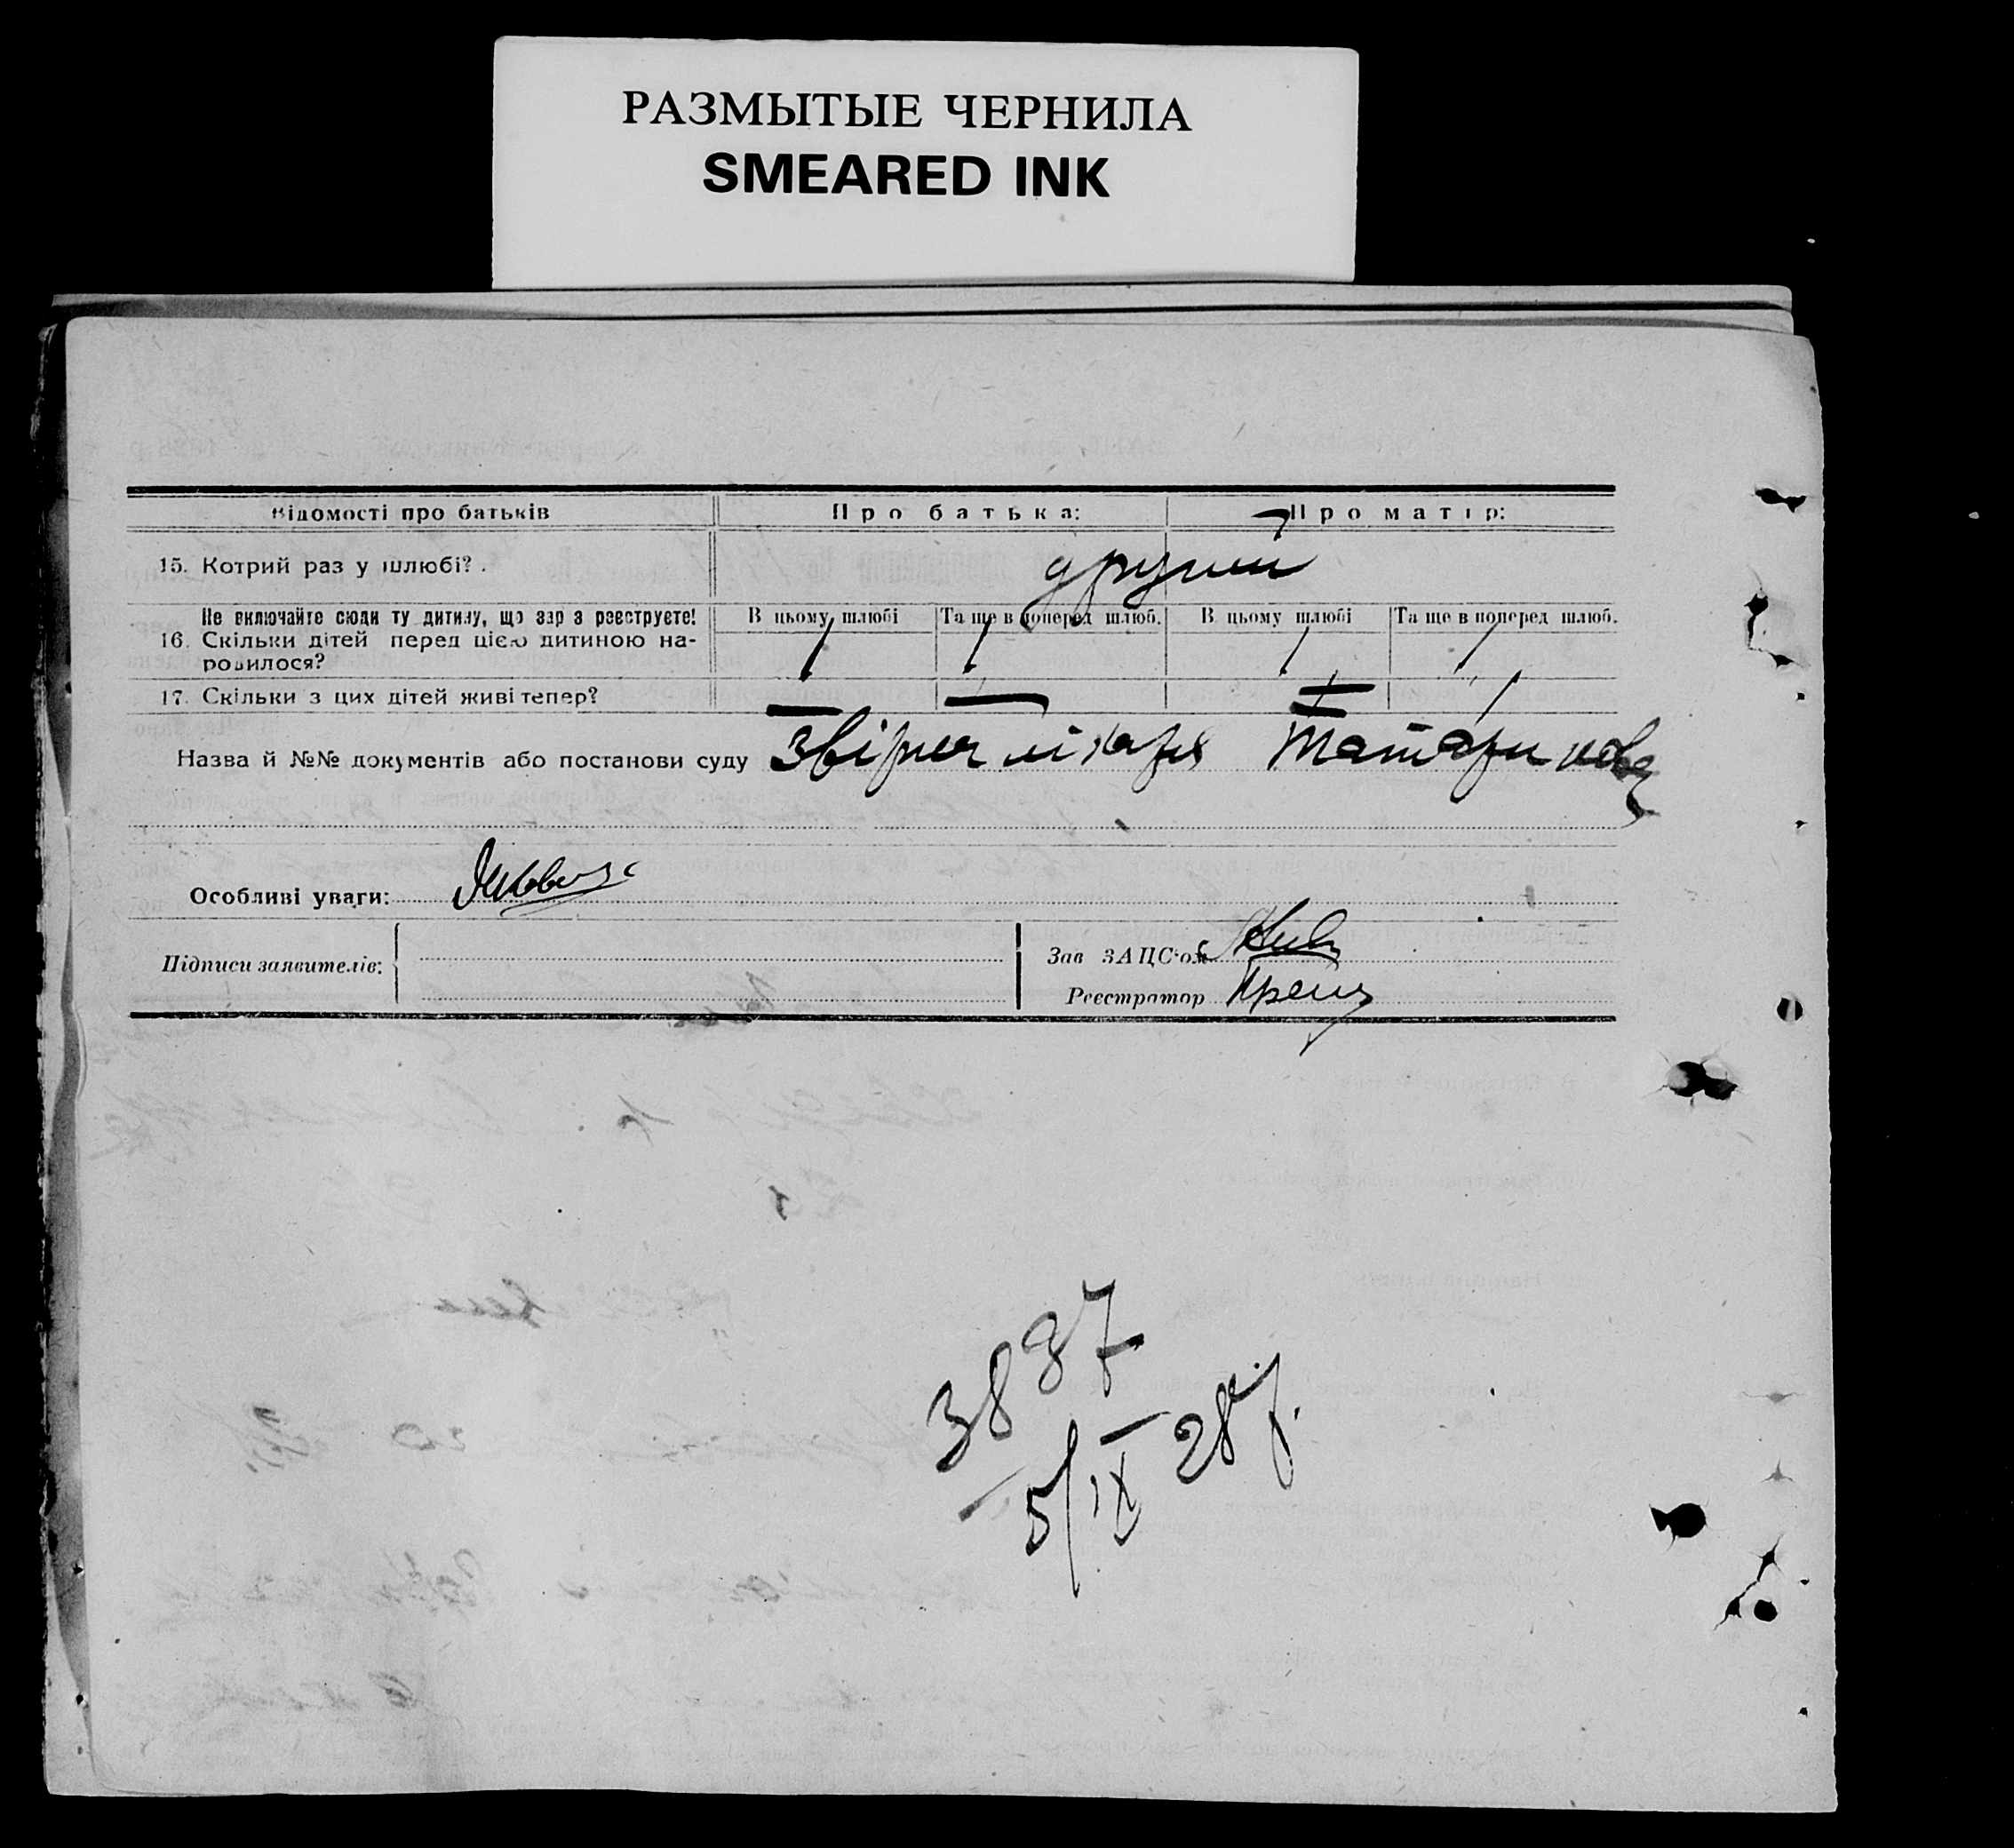 РАЗМЫТЫЕ ЧЕРНИЛА
SMEARED INK
Відомості про батьків Про батька: Про матір:
15. Котрий раз у шлюбі?. другий
Не включайте сюди ту дитину, що зараз реєструєте! В цьому шлюбі Та ще в поперед шлюб. В цьому шлюбі Та ще в поперед шлюб.
16. Скільки дітей перед цією дитиною на-
родилося?
17. Скільки з цих дітей живі тепер?
Назва й №№ документів або постанови суду лікаря
Особливі уваги:
Підписи заявителів: Зав ЗАЦС'ом
Реєстратор
3887
5/IX 28 р.